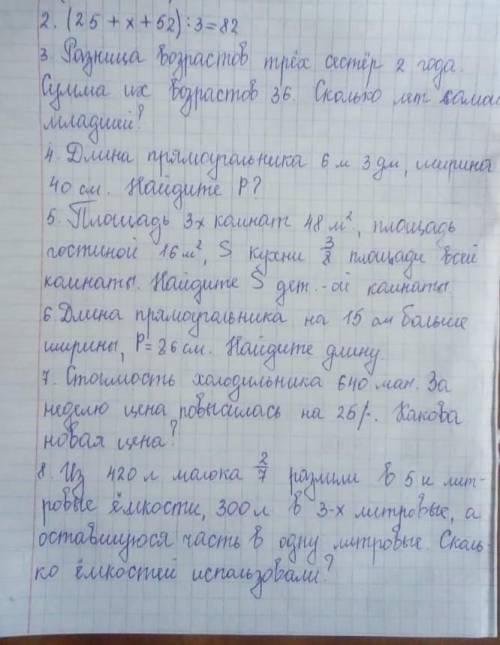 2. (25 + x + 52) : 3 = 82
3. Разница возрастов трёх сестёр 2 года.
Сумма их возрастов 36. Сколько лет самой
младшей?
4. Длина прямоугольника 6 м 3 дм, ширина
40 см. Найдите P?
5. Площадь 3х комнат 48 м², площадь
гостиной 16 м², S кухни 3/8 площади всей
комнаты. Найдите S дет.-ой комнаты.
6. Длина прямоугольника на 15 см больше
ширины, P = 86 см. Найдите длину.
7. Стоимость холодильника 640 ман. За
неделю цена повысилась на 25%. Какова
новая цена?
8. Из 420 л молока 2/7 разлили в 5 и лит-
ровые ёмкости, 300 л в 3-х литровые, а
оставшуюся часть в одну литровые. Сколь
ко ёмкостей использовали?